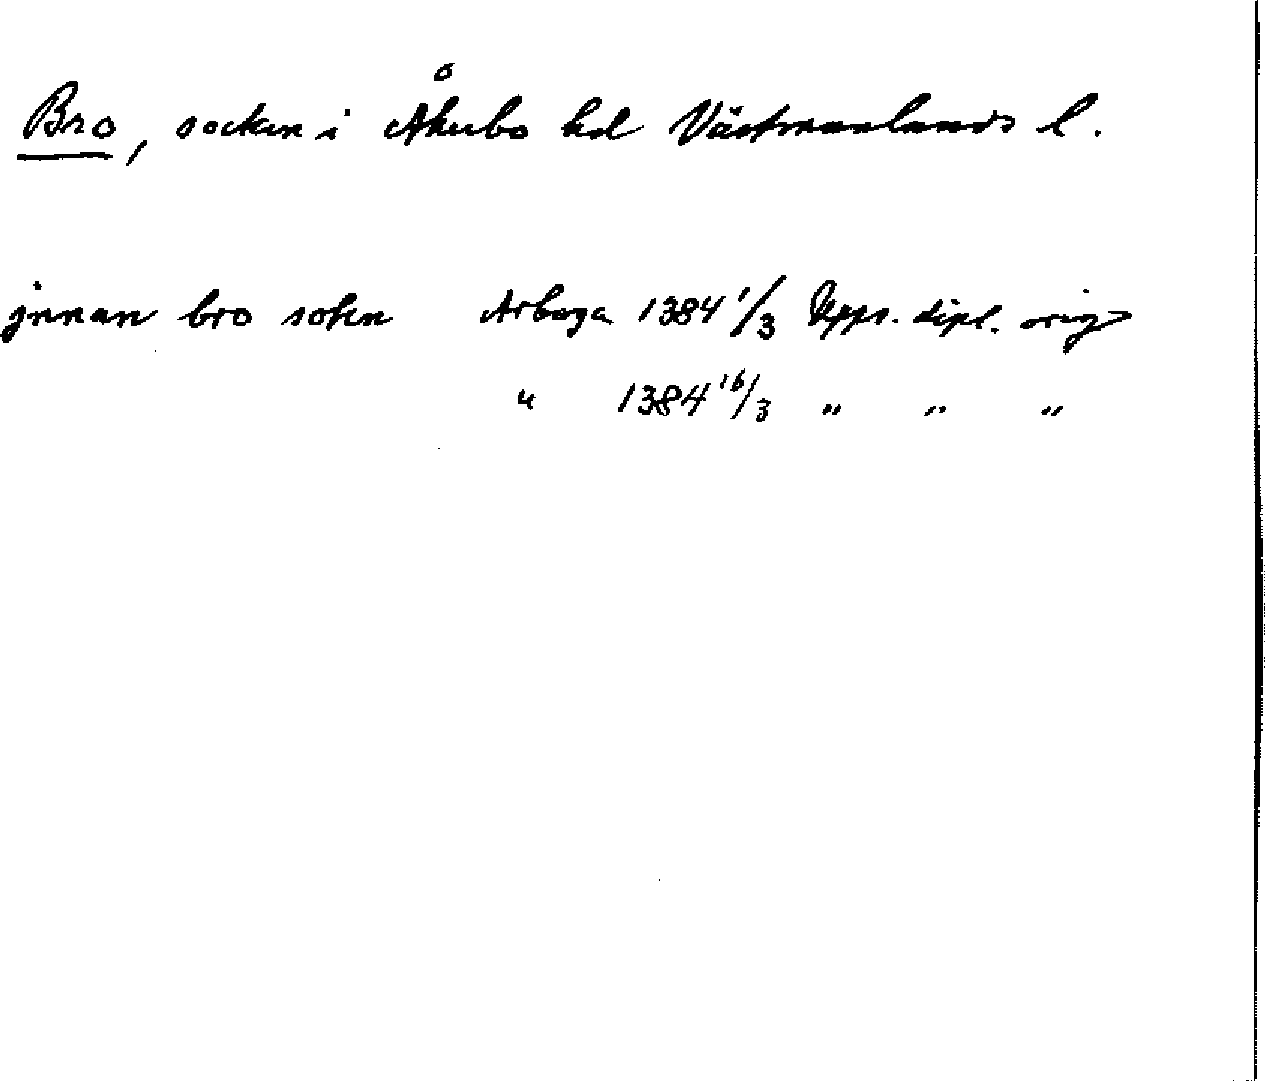 Bro, socken i Åkerbo hd Västmanlands l.
jnnan bro sokn Arboga 1384 1/3 Upps. dipl. orig
" 1384 16/3 " " "